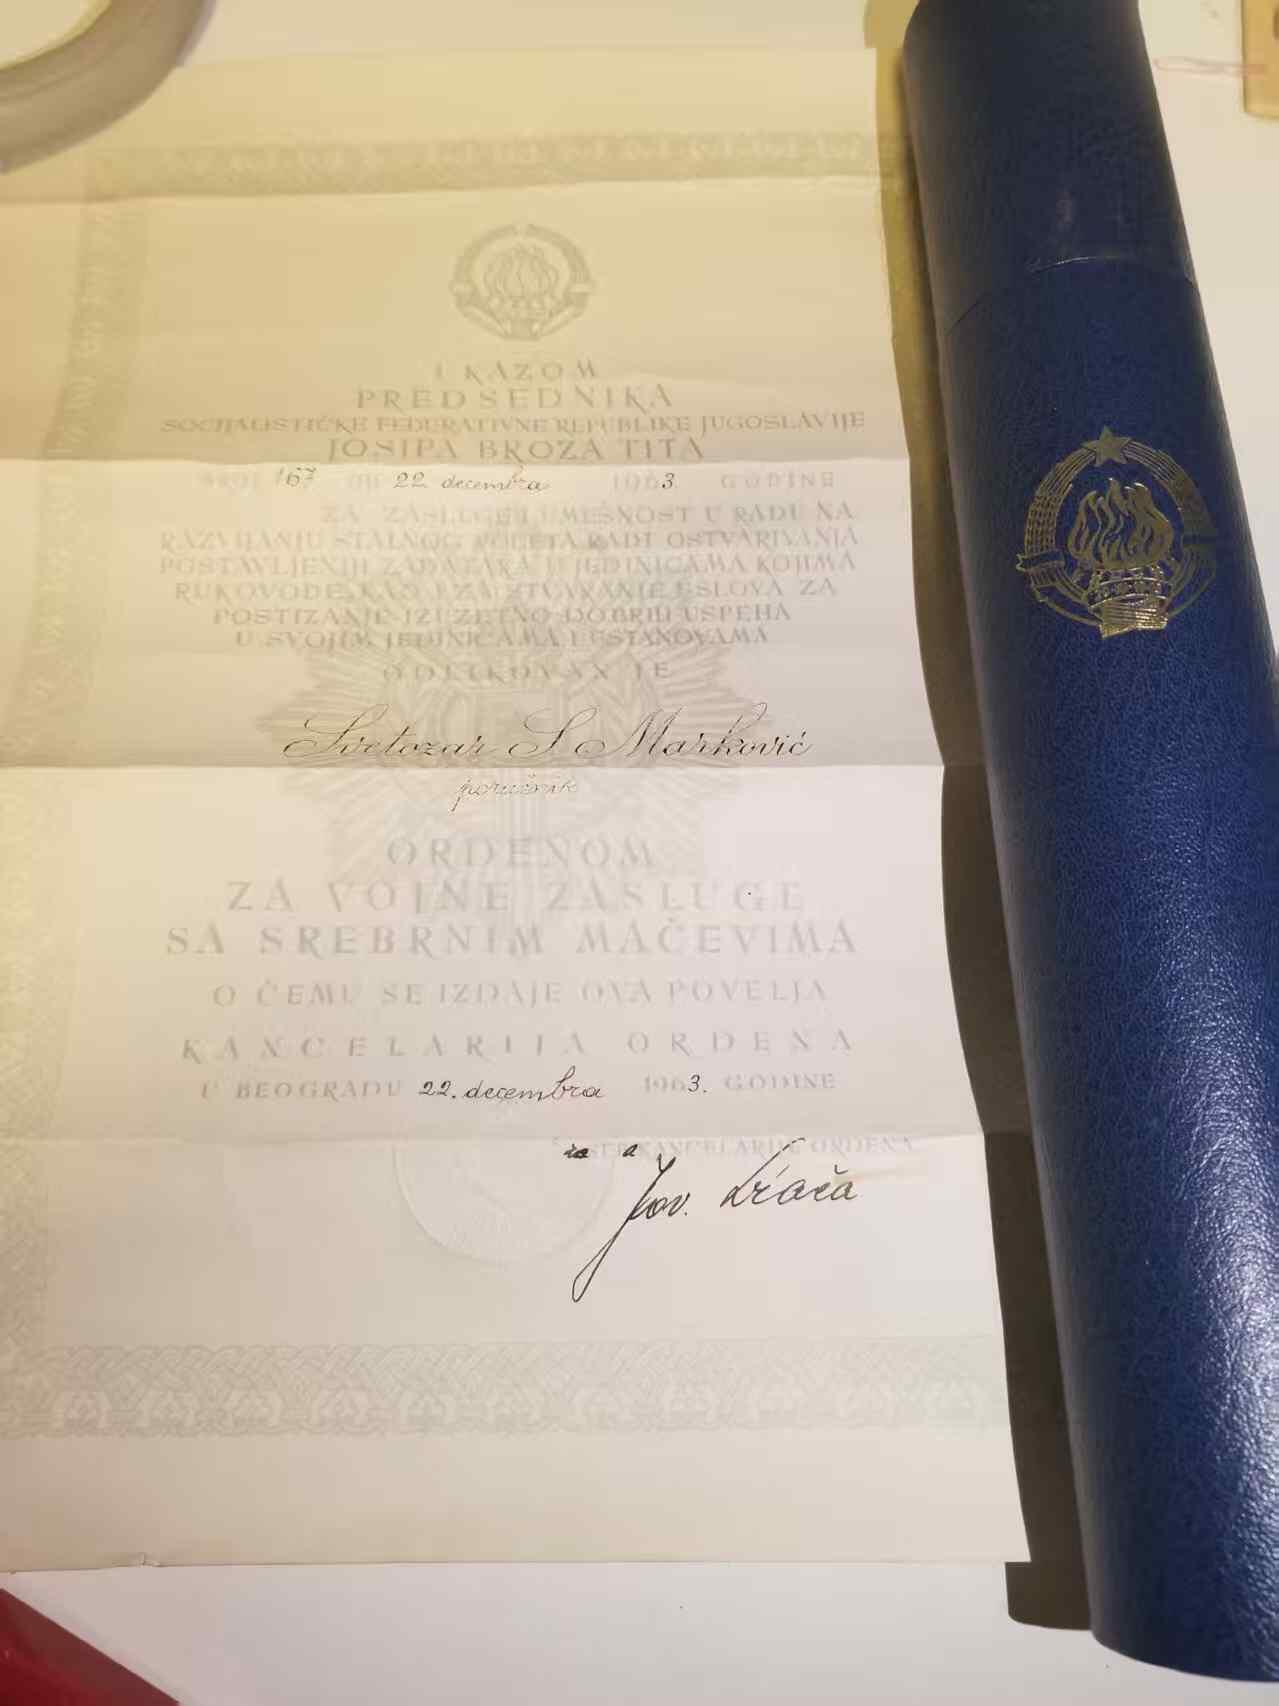 UKAZOM
PREDSEDNIKA
SOCIJALISTIČKE FEDERATIVNE REPUBLIKE JUGOSLAVIJE
JOSIPA BROZA TITA
BROJ 167 OD 22. decembra 1963. GODINE
ZA ZASLUGE I UMEŠNOST U RADU NA
RAZVIJANJU STALNOG POLETA RADI OSTVARIVANJA
POSTAVLJENIH ZADATAKA U JEDINICAMA KOJIMA
RUKOVODE KAO I ZA STVARANJE USLOVA ZA
POSTIZANJE IZUZETNO DOBRIH USPEHA
U SVOJIM JEDINICAMA I USTANOVAMA
ODLIKOVAN JE
Svetozar S. Marković
poručnik
ORDENOM
ZA VOJNE ZASLUGE
SA SREBRNIM MAČEVIMA
O ČEMU SE IZDAJE OVA POVELJA
KANCELARIJA ORDENA
U BEOGRADU 22. decembra 1963. GODINE
za ŠEFa KANCELARIJE ORDENA
Jov.